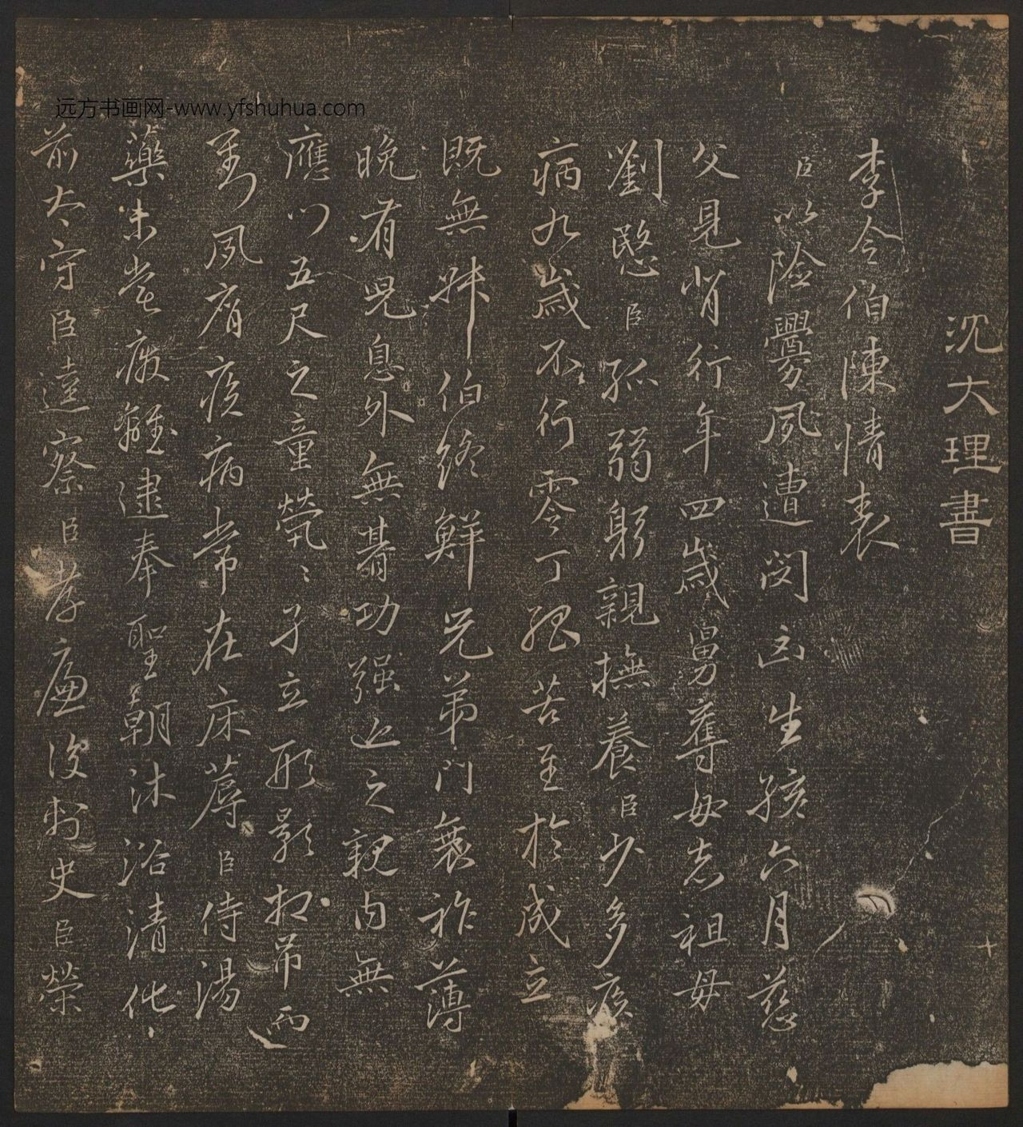 远方书画网-www.yfshuhua.com
沈大理書
李令伯陳情表
臣以險釁夙遭閔凶生孩六月慈
父見背行年四歲舅奪母志祖母
劉愍臣孤弱躬親撫養臣少多疾
病九歲不行零丁孤苦至於成立
既無叔伯終鮮兄弟門衰祚薄
晚有兒息外無朞功强近之親内無
應門五尺之童煢〻孑立形影相吊而
劉夙有疾病常在床蓐臣侍湯
藥未嘗廢離逮奉聖朝沐浴清化
前太守臣逵察臣孝廉後刺史臣榮